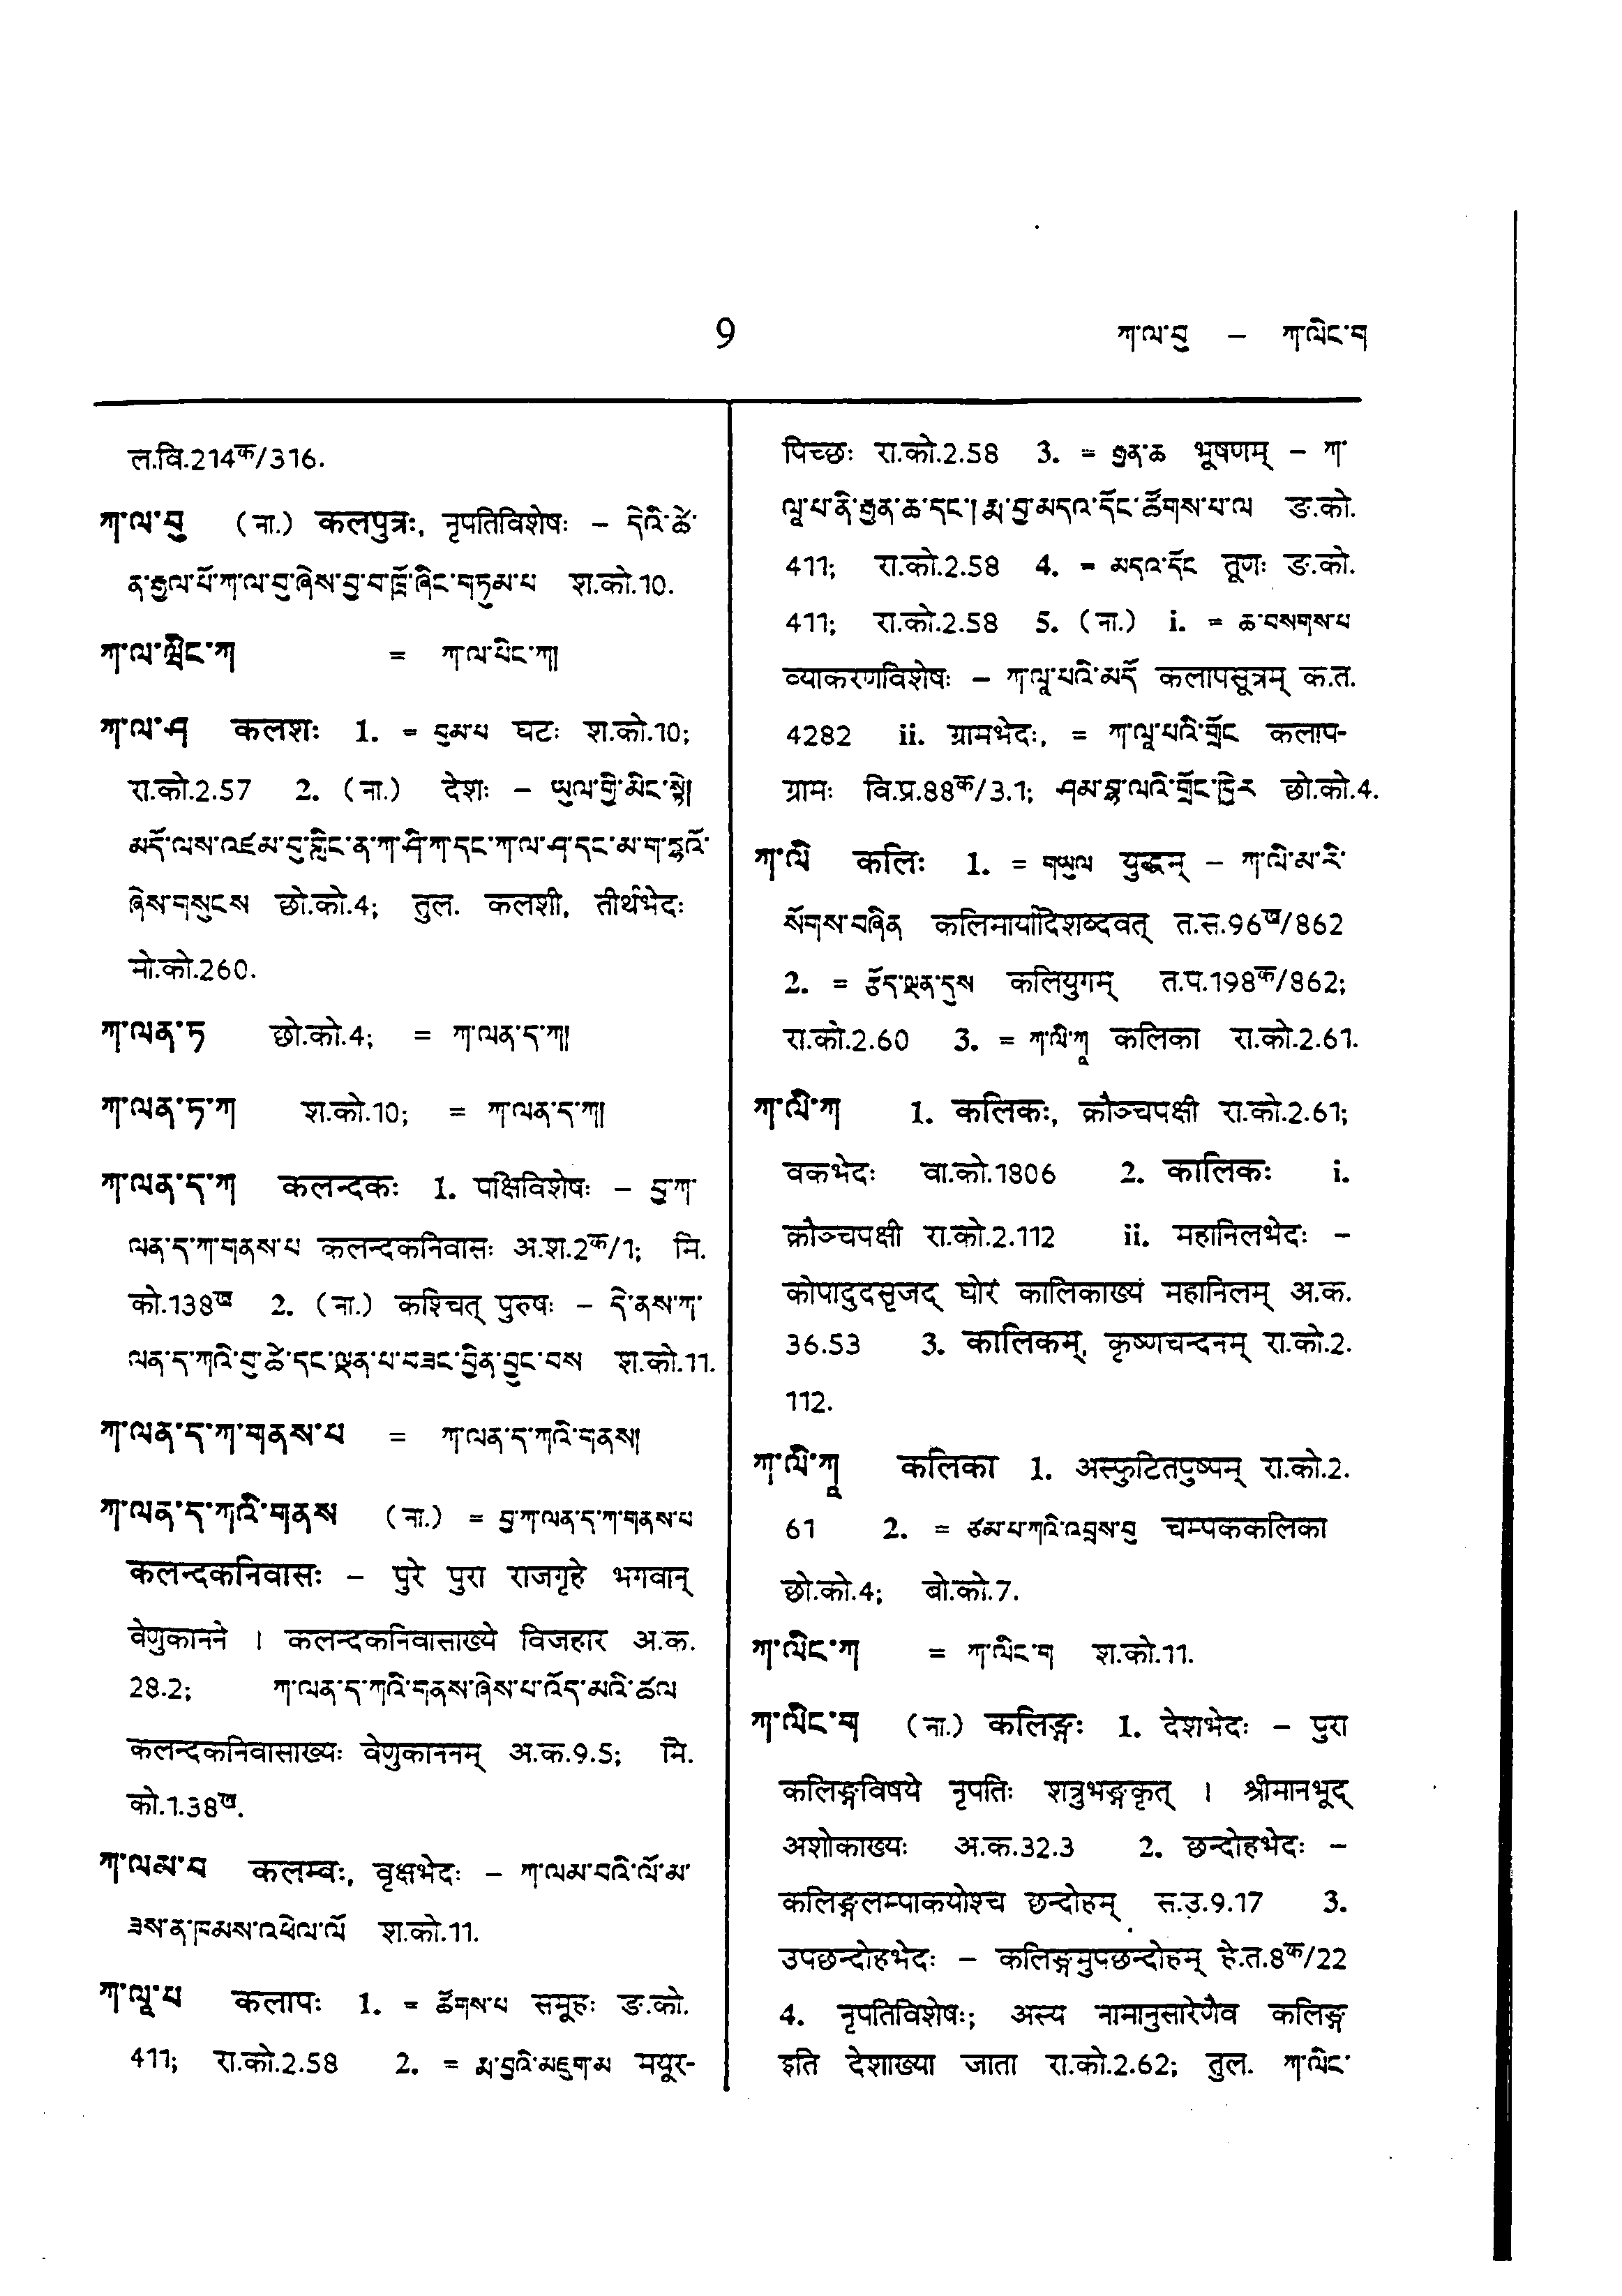 9 ཀ་ལ་བུ – ཀ་ལིང་ག
ल.वि.214क/316.
ཀ་ལ་བུ (ना.) कलपुत्रः, नृपतिविशेषः – དེའི་ཚེ་
ན་རྒྱལ་པོ་ཀ་ལ་བུ་ཞེས་བྱ་བ་ཁྲོ་ཞིང་གཏུམ་པ श.को.10.
ཀ་ལ་ཕྱིང་ཀ = ཀ་ལ་པིང་ཀ།
ཀ་ལ་ཤ कलशः 1. = བུམ་པ घटः श.को.10;
रा.को.2.57 2. (ना.) देशः – ཡུལ་གྱི་མིང་སྟེ།
མདོ་ལས་འཛམ་བུ་གླིང་ན་ཀ་ཤི་ཀ་དང་ཀ་ལ་ཤ་དང་མ་ག་དྷའོ་
ཞེས་གསུངས छो.को.4; तुल. कलशी, तीर्थभेदः
मो.को.260.
ཀ་ལན་ཏ छो.को.4; = ཀ་ལན་ད་ཀ།
ཀ་ལན་ཏ་ཀ श.को.10; = ཀ་ལན་ད་ཀ།
ཀ་ལན་ད་ཀ कलन्दकः 1. पक्षिविशेषः – བྱ་ཀ་
ལན་ད་ཀ་གནས་པ कलन्दकनिवासः अ.श.2क/1; मि.
को.138ख 2. (ना.) कश्चित् पुरुषः – དེ་ནས་ཀ་
ལན་ད་ཀའི་བུ་ཚེ་དང་ལྡན་པ་བཟང་བྱིན་བྱུང་བས श.को.11.
ཀ་ལན་ད་ཀ་གནས་པ = ཀ་ལན་ད་ཀའི་གནས།
ཀ་ལན་ད་ཀའི་གནས (ना.) = བྱ་ཀ་ལན་ད་ཀ་གནས་པ
कलन्दकनिवासः – पुरे पुरा राजगृहे भगवान्
वेणुकानने । कलन्दकनिवासाख्ये विजहार अ.क.
28.2; ཀ་ལན་ད་ཀའི་གནས་ཞེས་པ་འོད་མའི་ཚལ
कलन्दकनिवासाख्यः वेणुकाननम् अ.क.9.5; मि.
को.1.38ख.
ཀ་ལམ་བ कलम्वः, वृक्षभेदः – ཀ་ལམ་བའི་ལོ་མ་
ཟས་ན་ཁམས་འཕེལ་ལོ श.को.11.
ཀ་ལཱ་པ कलापः 1. = ཚོགས་པ समूहः ङ.को.
411; रा.को.2.58 2. = རྨ་བྱའི་མཇུག་མ मयूर-
पिच्छः रा.को.2.58 3. = རྒྱན་ཆ भूषणम् – ཀ་
ལཱ་པ་ནི་རྒྱན་ཆ་དང་། རྨ་བྱ་མདའ་དོང་ཚོགས་པ་ལ ङ.को.
411; रा.को.2.58 4. = མདའ་དོང तूणः ङ.को.
411; रा.को.2.58 5. (ना.) i. = ཆ་བསགས་པ
व्याकरणविशेषः – ཀ་ལཱ་པའི་མདོ कलापसूत्रम् क.त.
4282 ii. ग्रामभेदः, = ཀ་ལཱ་པའི་གྲོང कलाप-
ग्रामः वि.प्र.88क/3.1; ཤམ་བྷ་ལའི་གྲོང་ཁྱེར छो.को.4.
ཀ་ལི कलिः 1. = གཡུལ युद्धम् – ཀ་ལི་མ་རི་
སོགས་བཞིན कलिमार्यादिशब्दवत् त.स.96ख/862
2. = རྩོད་ལྡན་དུས कलियुगम् त.प.198क/862;
रा.को.2.60 3. = ཀ་ལི་ཀཱ कलिका रा.को.2.61.
ཀ་ལི་ཀ 1. कलिकः, क्रौञ्चपक्षी रा.को.2.61;
वकभेदः वा.को.1806 2. कालिकः i.
क्रौञ्चपक्षी रा.को.2.112 ii. महानिलभेदः –
कोपादुदसृजद् घोरं कालिकाख्यं महानिलम् अ.क.
36.53 3. कालिकम्, कृष्णचन्दनम् रा.को.2.
112.
ཀ་ལི་ཀཱ कलिका 1. अस्फुटितपुष्पम् रा.को.2.
61 2. = ཙམ་པ་ཀའི་འབྲས་བུ चम्पककलिका
छो.को.4; बो.को.7.
ཀ་ལིང་ཀ = ཀ་ལིང་ག श.को.11.
ཀ་ལིང་ག (ना.) कलिङ्गः 1. देशभेदः – पुरा
कलिङ्गविषये नृपतिः शत्रुभङ्गकृत् । श्रीमानभूद्
अशोकाख्यः अ.क.32.3 2. छन्दोहभेदः –
कलिङ्गलम्पाकयोश्च छन्दोहम् स.उ.9.17 3.
उपछन्दोहभेदः – कलिङ्गमुपछन्दोहम् हे.त.8क/22
4. नृपतिविशेषः; अस्य नामानुसारेणैव कलिङ्ग
इति देशाख्या जाता रा.को.2.62; तुल. ཀ་ལིང་